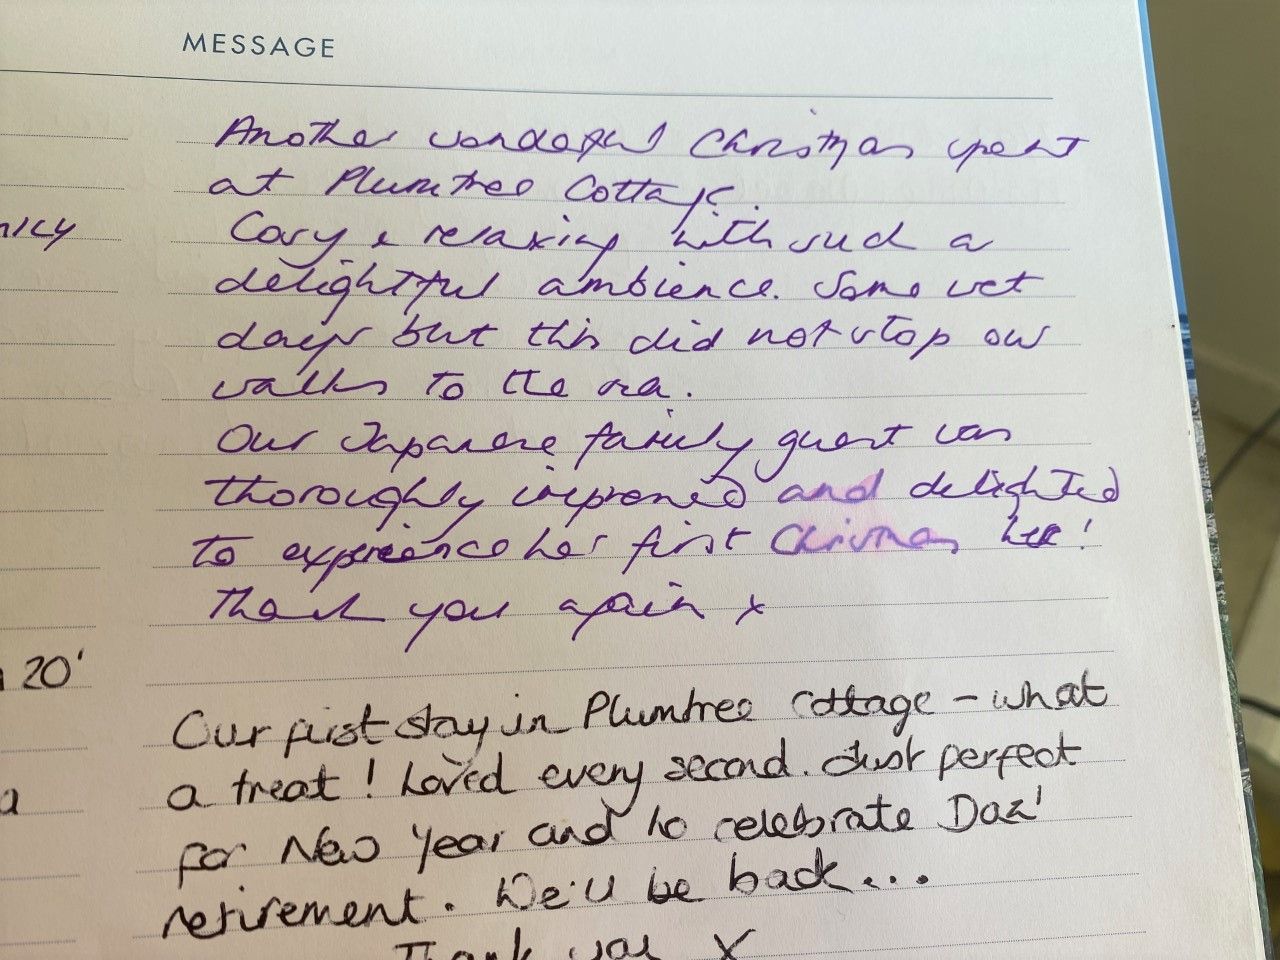 MESSAGE
Another wonderful Christmas spent
at Plumtree Cottage.
Cosy & relaxing with such a
delightful ambience. Some wet
days but this did not stop our
walks to the sea.
Our Japanese family guest was
thoroughly impressed and delighted
to experience her first Chrismas here!
Thank you again x
20'
Our first stay in Plumtree Cottage - what
a treat! Loved every second. Just perfect
a
for New Year and to celebrate Daz'
retirement. We'll be back...
Thank you X